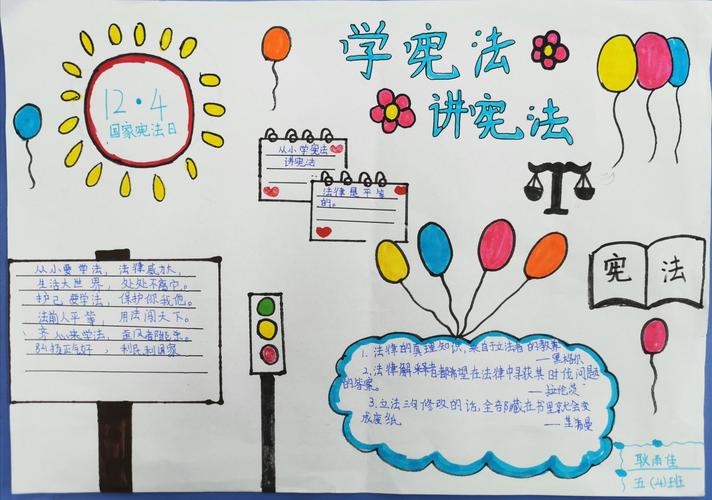 学宪法
讲宪法
12·4
国家宪法日
从小学宪法
讲宪法
法律是平等
的。
从小要学法，法律威力大，
生活大世界，处处不离它。
护己要学法，保护你我他。
法前人人平等，用法闯天下。
齐心来学法，
弘扬正气好，利民利国家
宪法
1. 法律的真理知识，来自于立法者的教养
——黑格尔
2. 法律解释者都希望在法律中寻获其时代问题
的答案。
——拉伦茨
3. 立法三句修改的话，全部藏在书里就会变
成废纸
耿雨佳
五（4）班